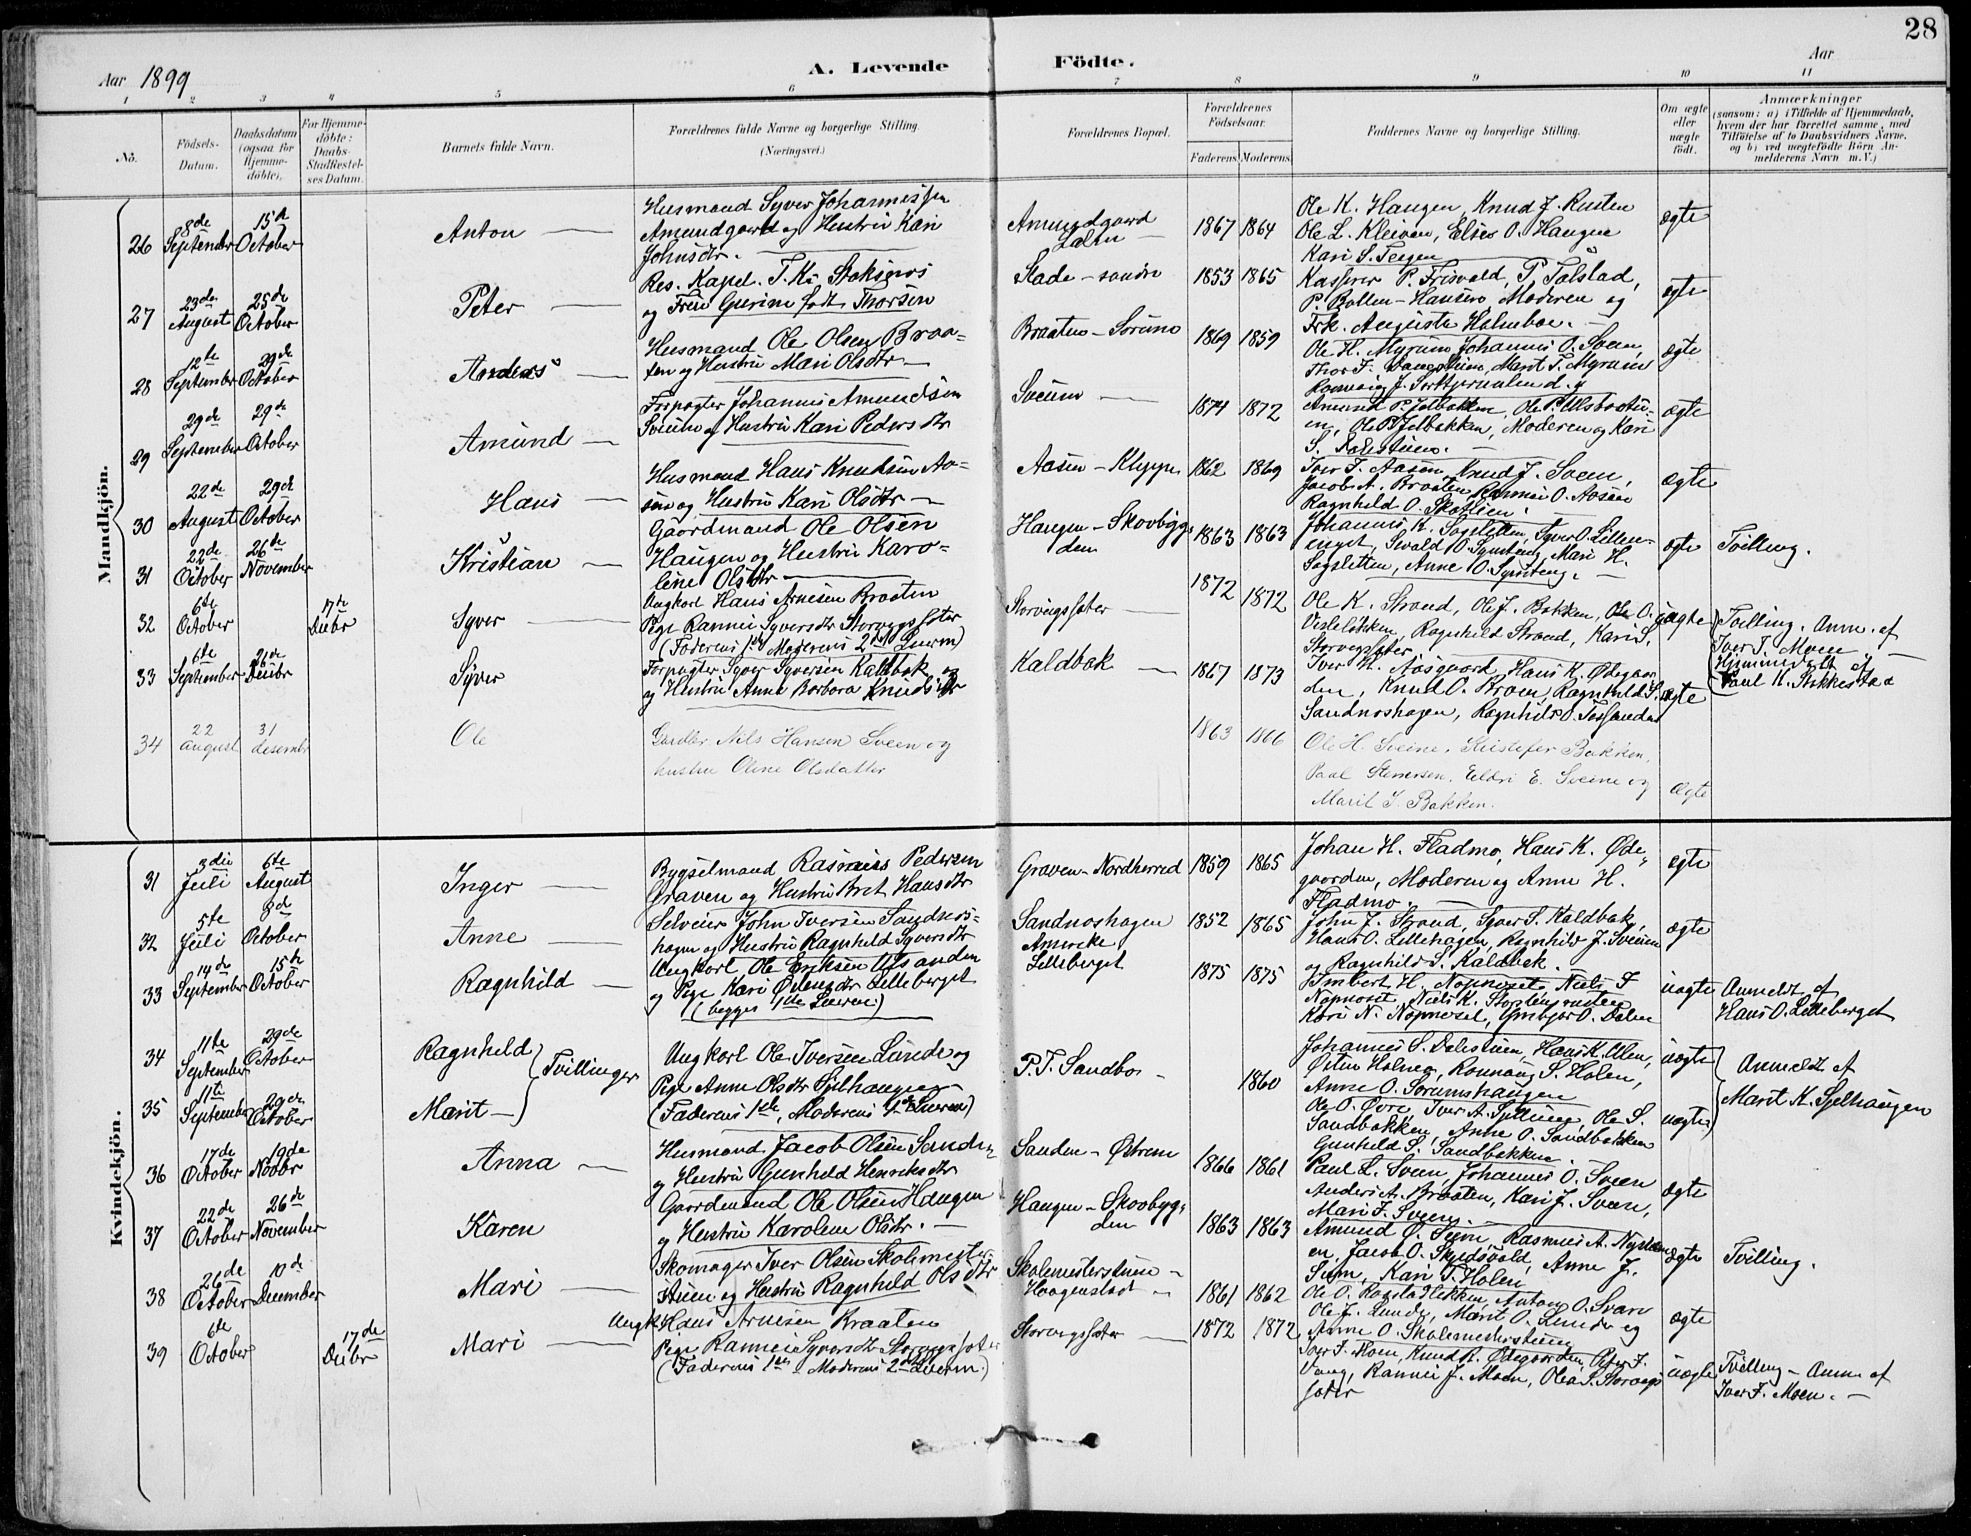 28
Aar 1899
A. Levende Födte.
Aar
1 2 3 4 5 6 7 8 9 10 11
No.
Födsels-Datum.
Daabsdatum (ogsaa for Hjemme-döbte).
For Hjemme-döbte: Daabs-Stadfæstel-ses Datum.
Barnets fulde Navn.
Forældrenes fulde Navne og borgerlige Stilling. (Næringsvei.)
Forældrenes Bopæl.
Forældrenes Födselsaar.
Faderens Moderens
Faddernes Navne og borgerlige Stilling.
Om ægte eller uægte födt.
Anmærkninger
(saasom: a) i Tilfælde af Hjemmedaab, hvem der har forrettet samme, med Tilföielse af to Daabsvidners Navne, og b) ved uægtefödte Börn An-melderens Navn m. V.)
Mandkjön.
26 8de September 15de October Anton
Husmand Syver Johannessen
Amundgaard og Hustru Kari
Johnsdr.
Amundgaard Lalm 1867 1864
Ole K. Haugen, Knud J. Rusten
Ole L. Kleiven, Elses O. Haugen
Kari S. Teigen
ægte
27 23de August 25de October Peter
Res. Kapel. T. K. Stoksnes
og Frue Gurine født Thorsen
Slade - sondre 1853 1865
Kasserer P. Frisvold, P. Tolstad,
P. Bolten-Hansen, Moderen og
Frk. Augusta Holmboe.
ægte
28 12te September 29de October Anders
Husmand Ole Olsen Braa-
ten og Hustru Mari Olsdtr
Braaten - Sorum 1869 1859
Ole H. Myrum, Johannes O. Sveen,
Thor F. Marit T. Myrum
ægte
29 29de September 29de October Amund
Forpagter Johannes Amundsen
Sveum og Hustru Kari Pedersdtr
Sveum 1874 1872
Amund P. Ole P. Ulsbraaten
Ole P. Moderen og Kari
S. Dalestuen.
ægte
30 22de August 29de October Hans
Husmand Hans Knudsen Aa-
sen og Hustru Kari Olsdtr
Aasen - Kleppe 1862 1869
Iver J. Aasen, Knud J. Sveen,
Jacob A. Braaten, Rasmus O. Aasen
Ragnhild O. Skotlien.
ægte
31 22de October 26de November Kristian
Gaardmand Ole Olsen
Haugen og Hustru Karo-
line Olsdtr
Haugen - Skovbyg-
den 1863 1863
Johannes K. Sagsletten, Syver O. Lillen-
enget, Sivald O. Mari H.
Sagsletten, Anne O.
ægte Tvilling.
32 6te October 17de Decbr Syver
Ungkarl Hans Arnesen Braaten
Pige Rannei Syversdtr Storvegssæter
(Faderens 1ste Moderens 2det Leierm)
Storvegssæter 1872 1872
Ole K. Strand, Ole J. Bakken, Ole O.
Veslelökken, Ragnhild Strand, Kari S.
Storvegssæter.
uægte
Tvilling. Anm. af
Iver J. Moen
Hjemmedøbt af
Paul K. Stikkestad
33 6te September 26de Decbr Syver
Forpagter Syver Syversen Kaldbak og
og Hustru Anne Barbara Knudsdtr
Kaldbak 1867 1873
Iver H. Aasgaard, Hans K. Ødegaar-
den, Knud O. Broen, Ragnhild S.
Sandneshagen, Ragnhild O. Tessanden
ægte
34 22 august 31 desembr Ole
Gardbr. Nils Hansen Sveen og
hustru Oline Olsdatter
1863 1866
Ole H. Sveine, Kristofer Bakken,
Paal Steinersen, Eldri E. Sveine og
Marit J. Bakken.
ægte
Kvindekjön.
31 3die Juli 6te August Inger
Bygselmand Rasmus Pedersen
Graven og Hustru Brit Hansdtr
Graven - Nordherred 1859 1865
Johan H. Fladmo, Hans K. Øde-
gaarden, Moderen og Anne H.
Fladmo.
ægte
32 5te Juli 8de October Anne
Selveier John Iversen Sandnes-
hagen og Hustru Ragnhild Syversdtr
Sandneshagen 1852 1865
John J. Strand, Syver S. Kaldbak,
Hans O. Lillehagen, Ragnhild J. Sveen
og Ragnhild S. Kaldbak.
ægte
33 14de September 15de October Ragnhild
Ungkarl Ole Eriksen Ulsanden
og Pige Kari Østensdtr Lilleberget
(begges 1ste Leierm.)
Amerika
Lilleberget 1875 1875
Imbert H. Nopnoset, Niels F.
Nopnoset, Niels K.
Kari N. Nopnoset, Ymbjor O. Dalen
uægte
Anmeldt af
Hans O. Lilleberget
34 11te September 29de October Ragnhild
35 11te September 29de October Marit
Tvillinger
Ungkarl Ole Iversen Lunde og
Pige Anne Olsdtr Sjelhaugen
(Faderens 1ste, Moderens 4de Leierm)
P.T. Sandbo 1860
Johannes S. Dalestuen, Hans K. Ulen,
Østen Holmen, Rønnaug S. Holen,
Anne O. Sorumshaugen
Ole O. Øvre, Iver A. Ole S.
Sandbakken, Anne O. Sandbakken
Gunhild S. Sandbakken.
uægte
uægte
Anmeldt af
Marit K. Sjelhaugen
36 17de October 19de Novbr Anna
Husmand Jacob Olsen Sanden
og Hustru Gunhild Henriksdtr
Sanden - Østrem 1866 1861
Paul L. Sveen, Johannes O. Sveen
Anders A. Braaten, Kari J. Sveen,
Mari J. Sveen.
ægte
37 22de October 26de November Karen
Gaardmand Ole Olsen Haugen
og Hustru Karoline Olsdtr.
Haugen - Skovbyg-
den 1863 1863
Amund O. Rasmus A.
en, Jacob O. Skjedsvold, Anne J.
Kari T. Holen
ægte Tvilling.
38 26de October 10de December Mari
Skomager Iver Olsen Skolemester-
stuen og Hustru Ragnhild Olsdtr
Skolemesterstuen -
Haagenstad - 1861 1862
Ole O. Rogstadlökken, Anton O. Svare
Ole J. Lunde, Marit O. Lunde og
Anne O. Skolemesterstuen
ægte
39 6te October 17de Decbr Mari
Ungk. Hans Arnesen Braaten
Pige Rannei Syversdtr Storvegssæter
(Faderens 1ste Moderens 2det Leierm.)
Storvegssæter 1872 1872
Iver J. Moen, Knud K. Ødegaarden, Peter J.
Vang, Rannei J. Moen, Olea S. Storvegs
sæter
uægte
Tvilling - Anm. af
Iver J. Moen.